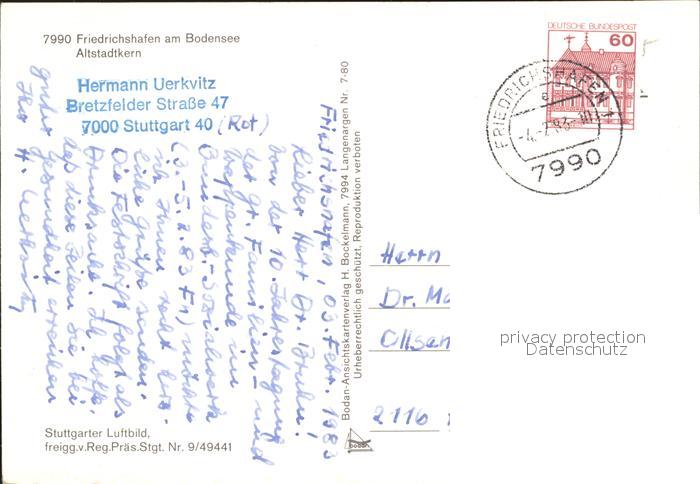 7990 Friedrichshafen am Bodensee
Altstadtkern
Hermann Uerkvitz
Bretzfelder Straße 47
7000 Stuttgart 40 (Rot)
Friedrichshafen, 03. Febr. 1983
Lieber Herr Dr. Bruhn!
Von der 10. Jahrestagung
der gr. Familien- und
Wappenkunde im
Bundesb.-Sozialwerk
(3.-5.2.83 Fn) möchte
ich Ihnen recht herz-
liche Grüße senden.
Die Festschrift folgt als
Drucksache. Ich hoffe,
daß diese Zeilen Sie bei
guter Gesundheit erreichen
Ihr H. Uerkvitz
Stuttgarter Luftbild,
freigg.v.Reg.Präs.Stgt. Nr. 9/49441
Bodan-Ansichtskartenverlag H. Bockelmann, 7994 Langenargen Nr. 7-80
Urheberrechtlich geschützt. Reproduktion verboten
bodan
DEUTSCHE BUNDESPOST
60
FRIEDRICHSHAFEN 1
e
-4.-2.83
7990
Herrn
Dr. Ma
Ollsen
2116
privacy protection
Datenschutz